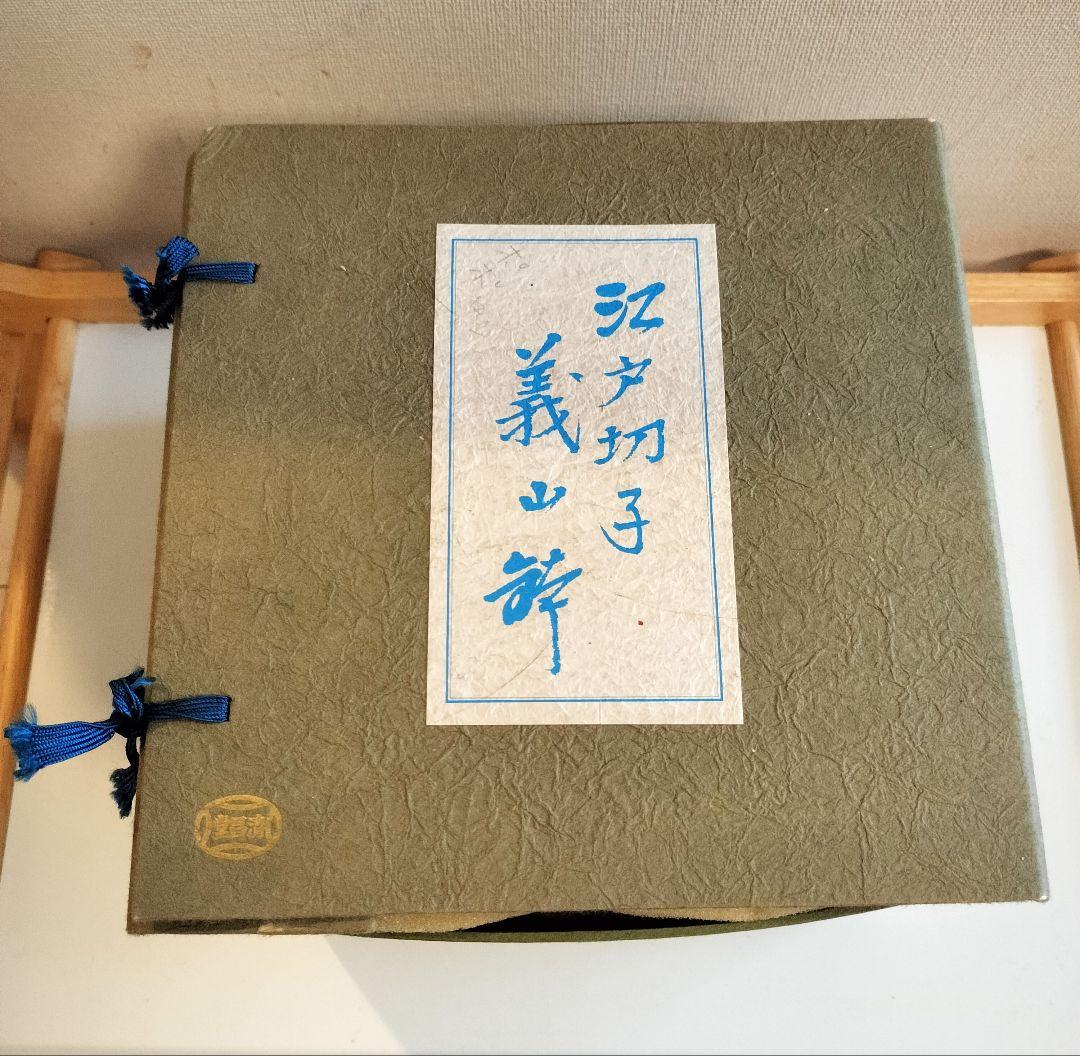 江戸切子
義山鉢